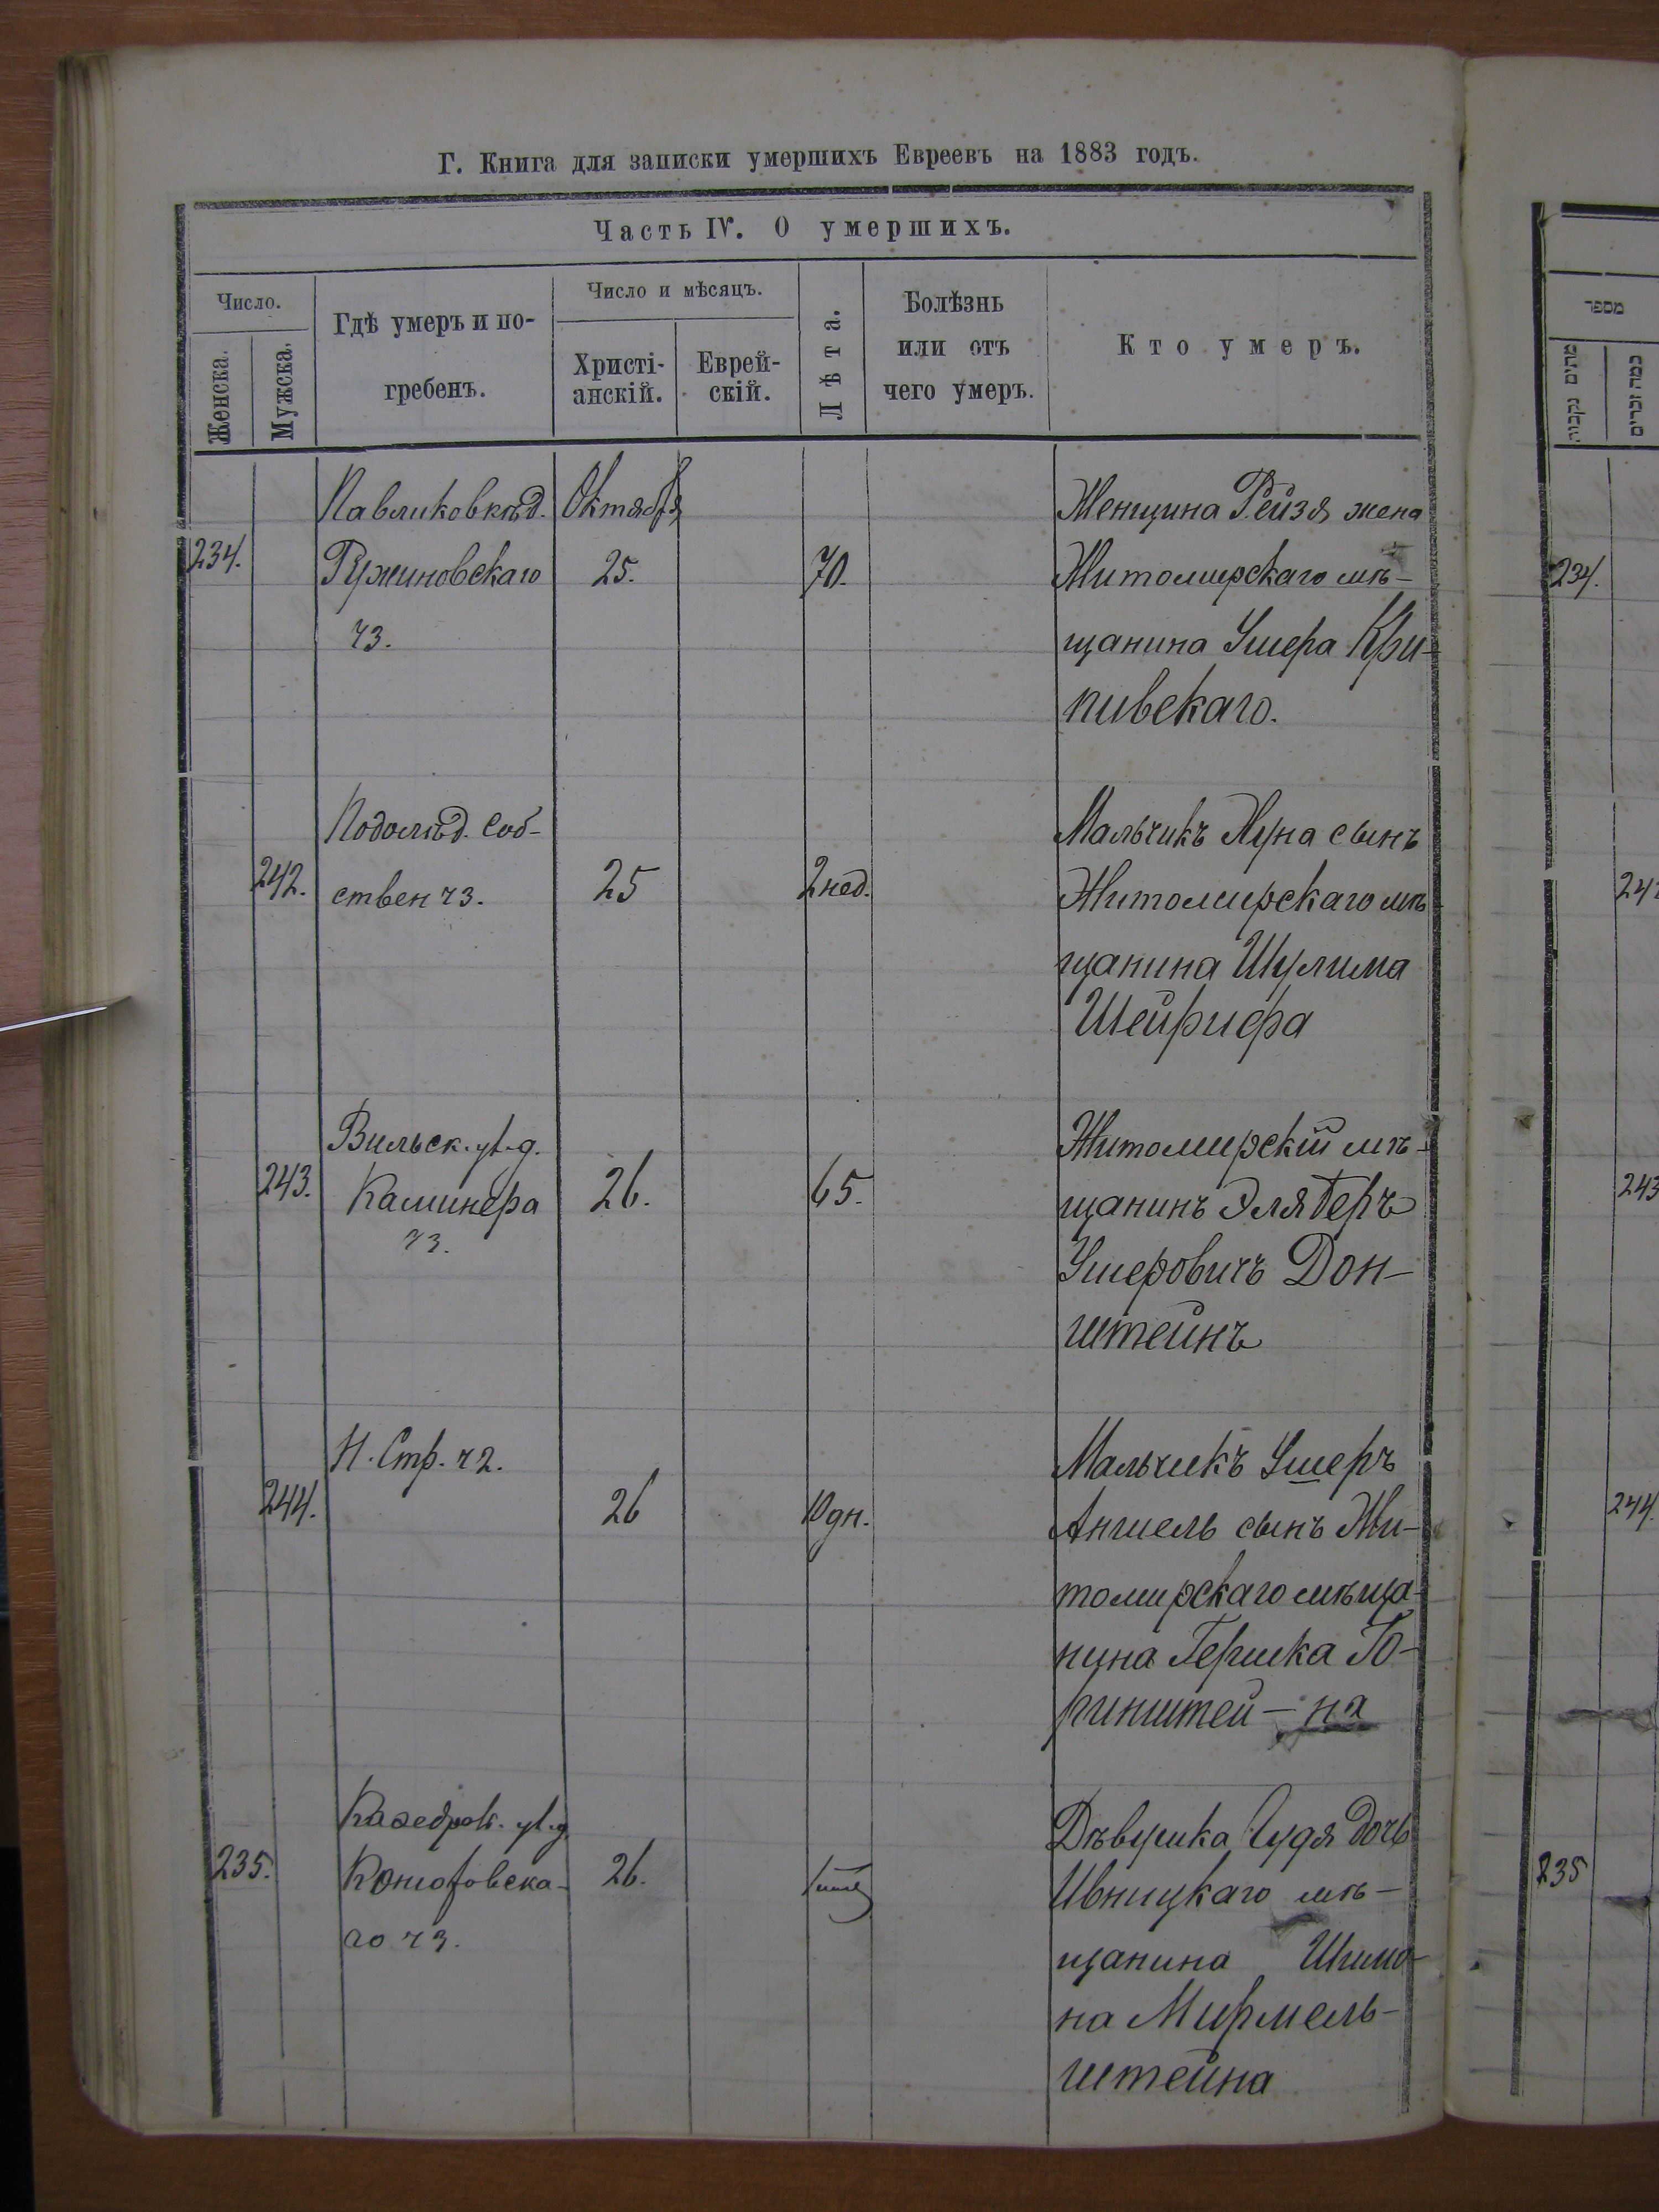 Г. Книга для записки умершихъ Евреевъ на 1883 годъ.
Часть IV. О умершихъ.
Число.
Женска.
Мужска.
Гдѣ умеръ и по-
гребенъ.
Число и мѣсяцъ.
Христі-
анскій.
Еврей-
скій.
Лѣта.
Болѣзнь
или отъ
чего умеръ.
Кто умеръ.
234.
Павликовкѣ д.
Ружиновскаго
ч3.
Октября
25.
70.
Женщина Рейзя жена
Житомирскаго мѣ-
щанина Ушера Кри-
пивскаго.
242.
Подолѣ д. Соб-
ствен ч3.
25
2 нед.
Мальчикъ Нуна сынъ
Житомирскаго мѣ-
щанина Шулима
Шейрифа
243.
Вильск. ул. д.
Каминера
ч3.
26.
65.
Житомирскій мѣ-
щанинъ Эля Беръ
Ушеровичъ Дон-
штейнъ
244.
Н. Стр. ч2.
26
10 дн.
Мальчикъ Ушеръ
Аншель сынъ Жи-
томирскаго мѣща-
нина Гершка Бо-
ринштей-на
235.
Каѳедрал. ул. д.
го ч3.
26.
Дѣвушка дочь
Ивницкаго мѣ-
щанина Шимо-
на Мирмель-
штейна
מספר
234.
243
244.
235